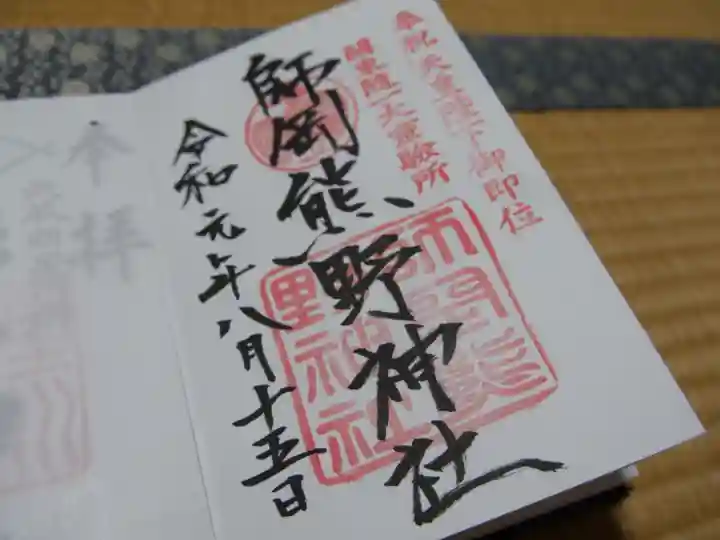 奉祝天皇陛下御即位
関東随一大霊験所
師岡熊野神社
師岡熊
野神社
令和元年八月十五日
奉拝